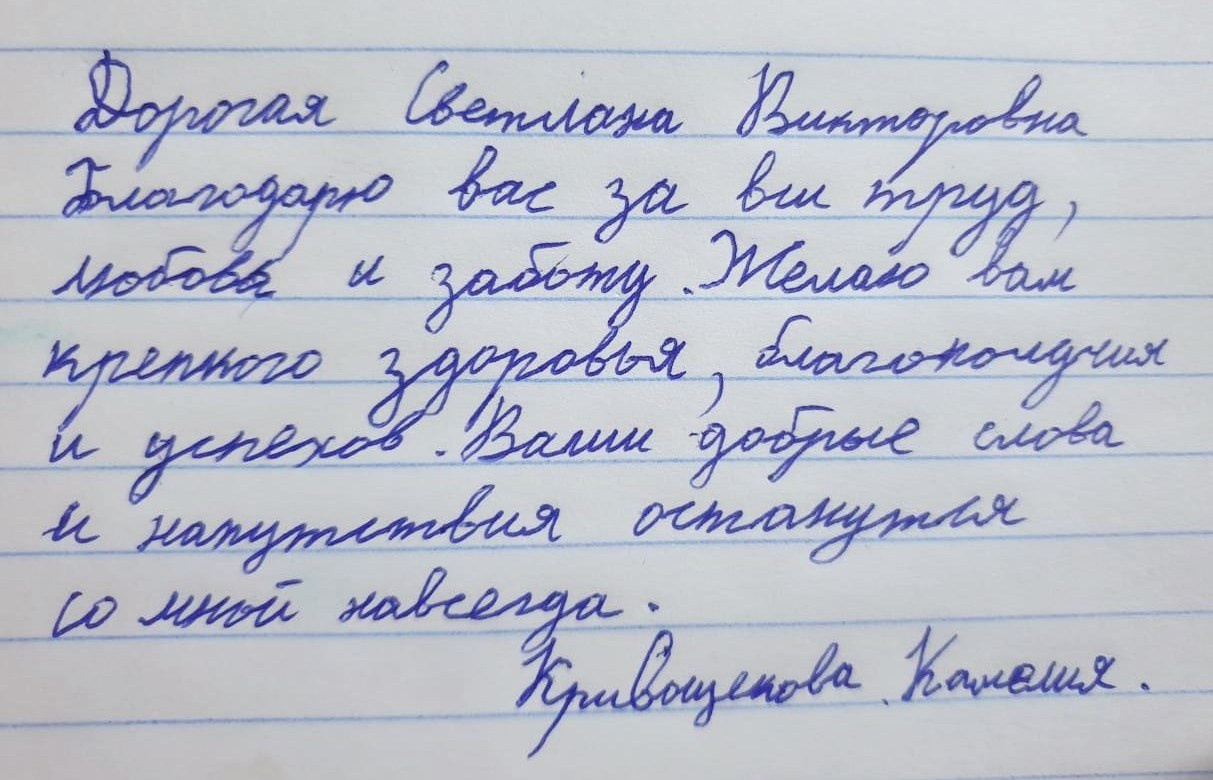 Дорогая Светлана Викторовна
Благодарю вас за вш труд,
любовь и заботу. Желаю вам
крепкого здоровья, благополучия
и успехов. Ваши добрые слова
и напутствия останутся
со мной навсегда.
Кривощекова Камелия.